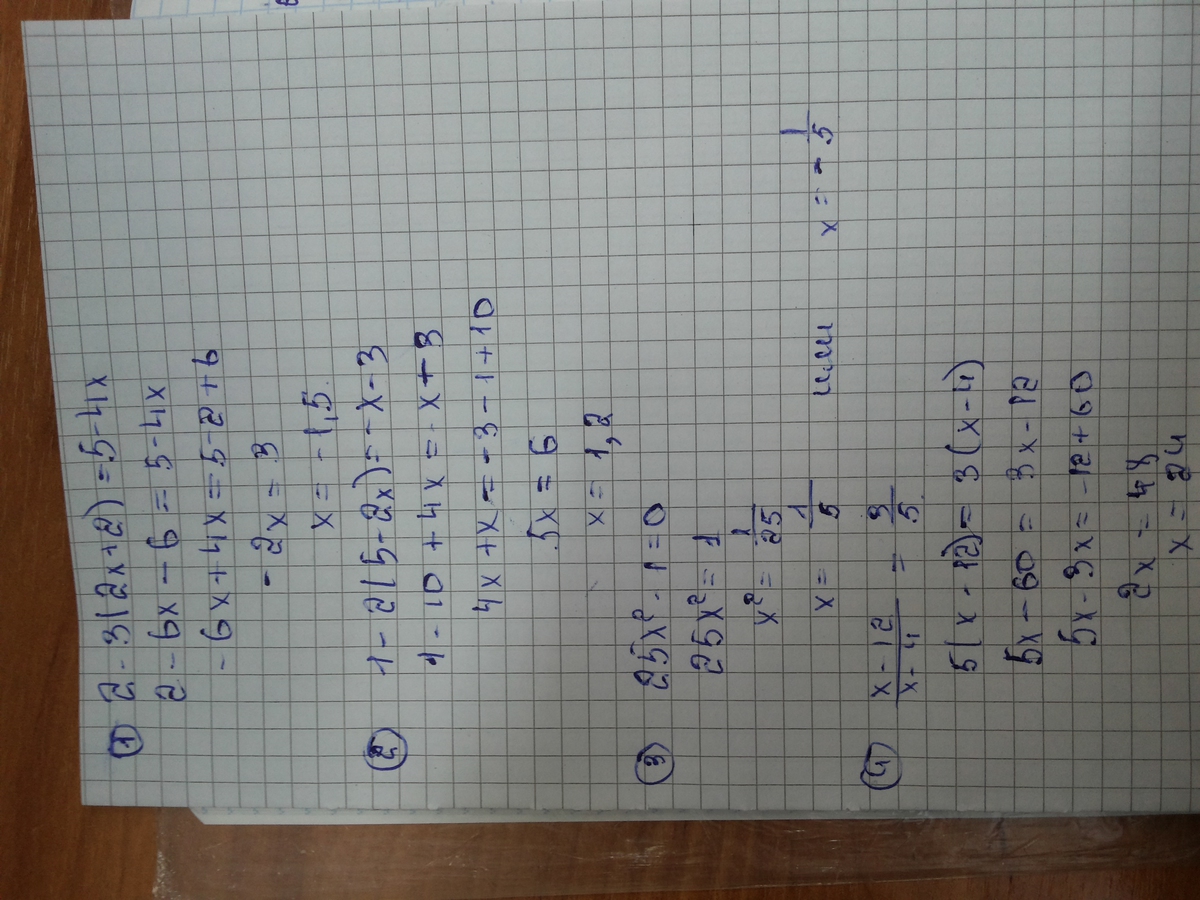 ① 2 - 3(2x+2) = 5-4x
2 - 6x - 6 = 5-4x
- 6x + 4x = 5-2+6
- 2x = 3
x = -1,5.
② 1 - 2(5-2x) = -x-3
1 - 10 + 4x = -x + 3
4x + x = -3 - 1 + 10
5x = 6
x = 1,2
③ 25x² - 1 = 0
25x² = 1
x² = 1/25
x = 1/5 или x = - 1/5
④ (x-12)/(x-4) = 3/5
5(x - 12) = 3(x-4)
5x - 60 = 3x - 12
5x - 3x = -12 + 60
2x = 48
x = 24